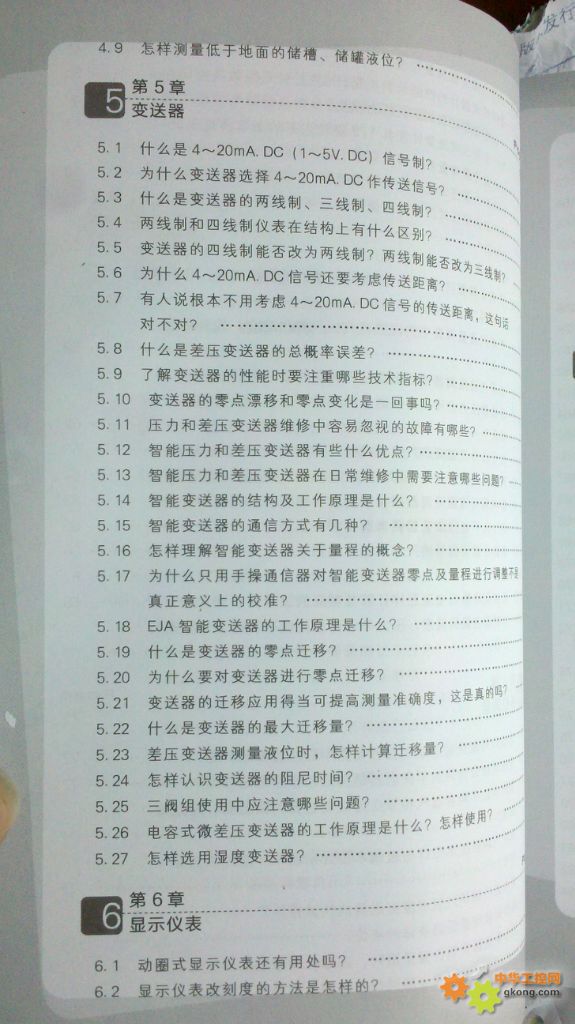 4.9 怎样测量低于地面的储槽、储罐液位?
5
第5章
变送器
5.1 什么是4～20mA.DC（1～5V.DC）信号制?
5.2 为什么变送器选择4～20mA.DC作传送信号?
5.3 什么是变送器的两线制、三线制、四线制?
5.4 两线制和四线制仪表在结构上有什么区别?
5.5 变送器的四线制能否改为两线制？两线制能否改为三线制?
5.6 为什么4～20mA.DC信号还要考虑传送距离?
5.7 有人说根本不用考虑4～20mA.DC信号的传送距离，这句话
对不对?
5.8 什么是差压变送器的总概率误差?
5.9 了解变送器的性能时要注重哪些技术指标?
5.10 变送器的零点漂移和零点变化是一回事吗?
5.11 压力和差压变送器维修中容易忽视的故障有哪些?
5.12 智能压力和差压变送器有些什么优点?
5.13 智能压力和差压变送器在日常维修中需要注意哪些问题?
5.14 智能变送器的结构及工作原理是什么?
5.15 智能变送器的通信方式有几种?
5.16 怎样理解智能变送器关于量程的概念?
5.17 为什么只用手操通信器对智能变送器零点及量程进行调整不是
真正意义上的校准?
5.18 EJA智能变送器的工作原理是什么?
5.19 什么是变送器的零点迁移?
5.20 为什么要对变送器进行零点迁移?
5.21 变送器的迁移应用得当可提高测量准确度，这是真的吗?
5.22 什么是变送器的最大迁移量?
5.23 差压变送器测量液位时，怎样计算迁移量?
5.24 怎样认识变送器的阻尼时间?
5.25 三阀组使用中应注意哪些问题?
5.26 电容式微差压变送器的工作原理是什么？怎样使用?
5.27 怎样选用湿度变送器?
6
第6章
显示仪表
6.1 动圈式显示仪表还有用处吗?
6.2 显示仪表改刻度的方法是怎样的?
版
发行
中华工控网
gkong.com